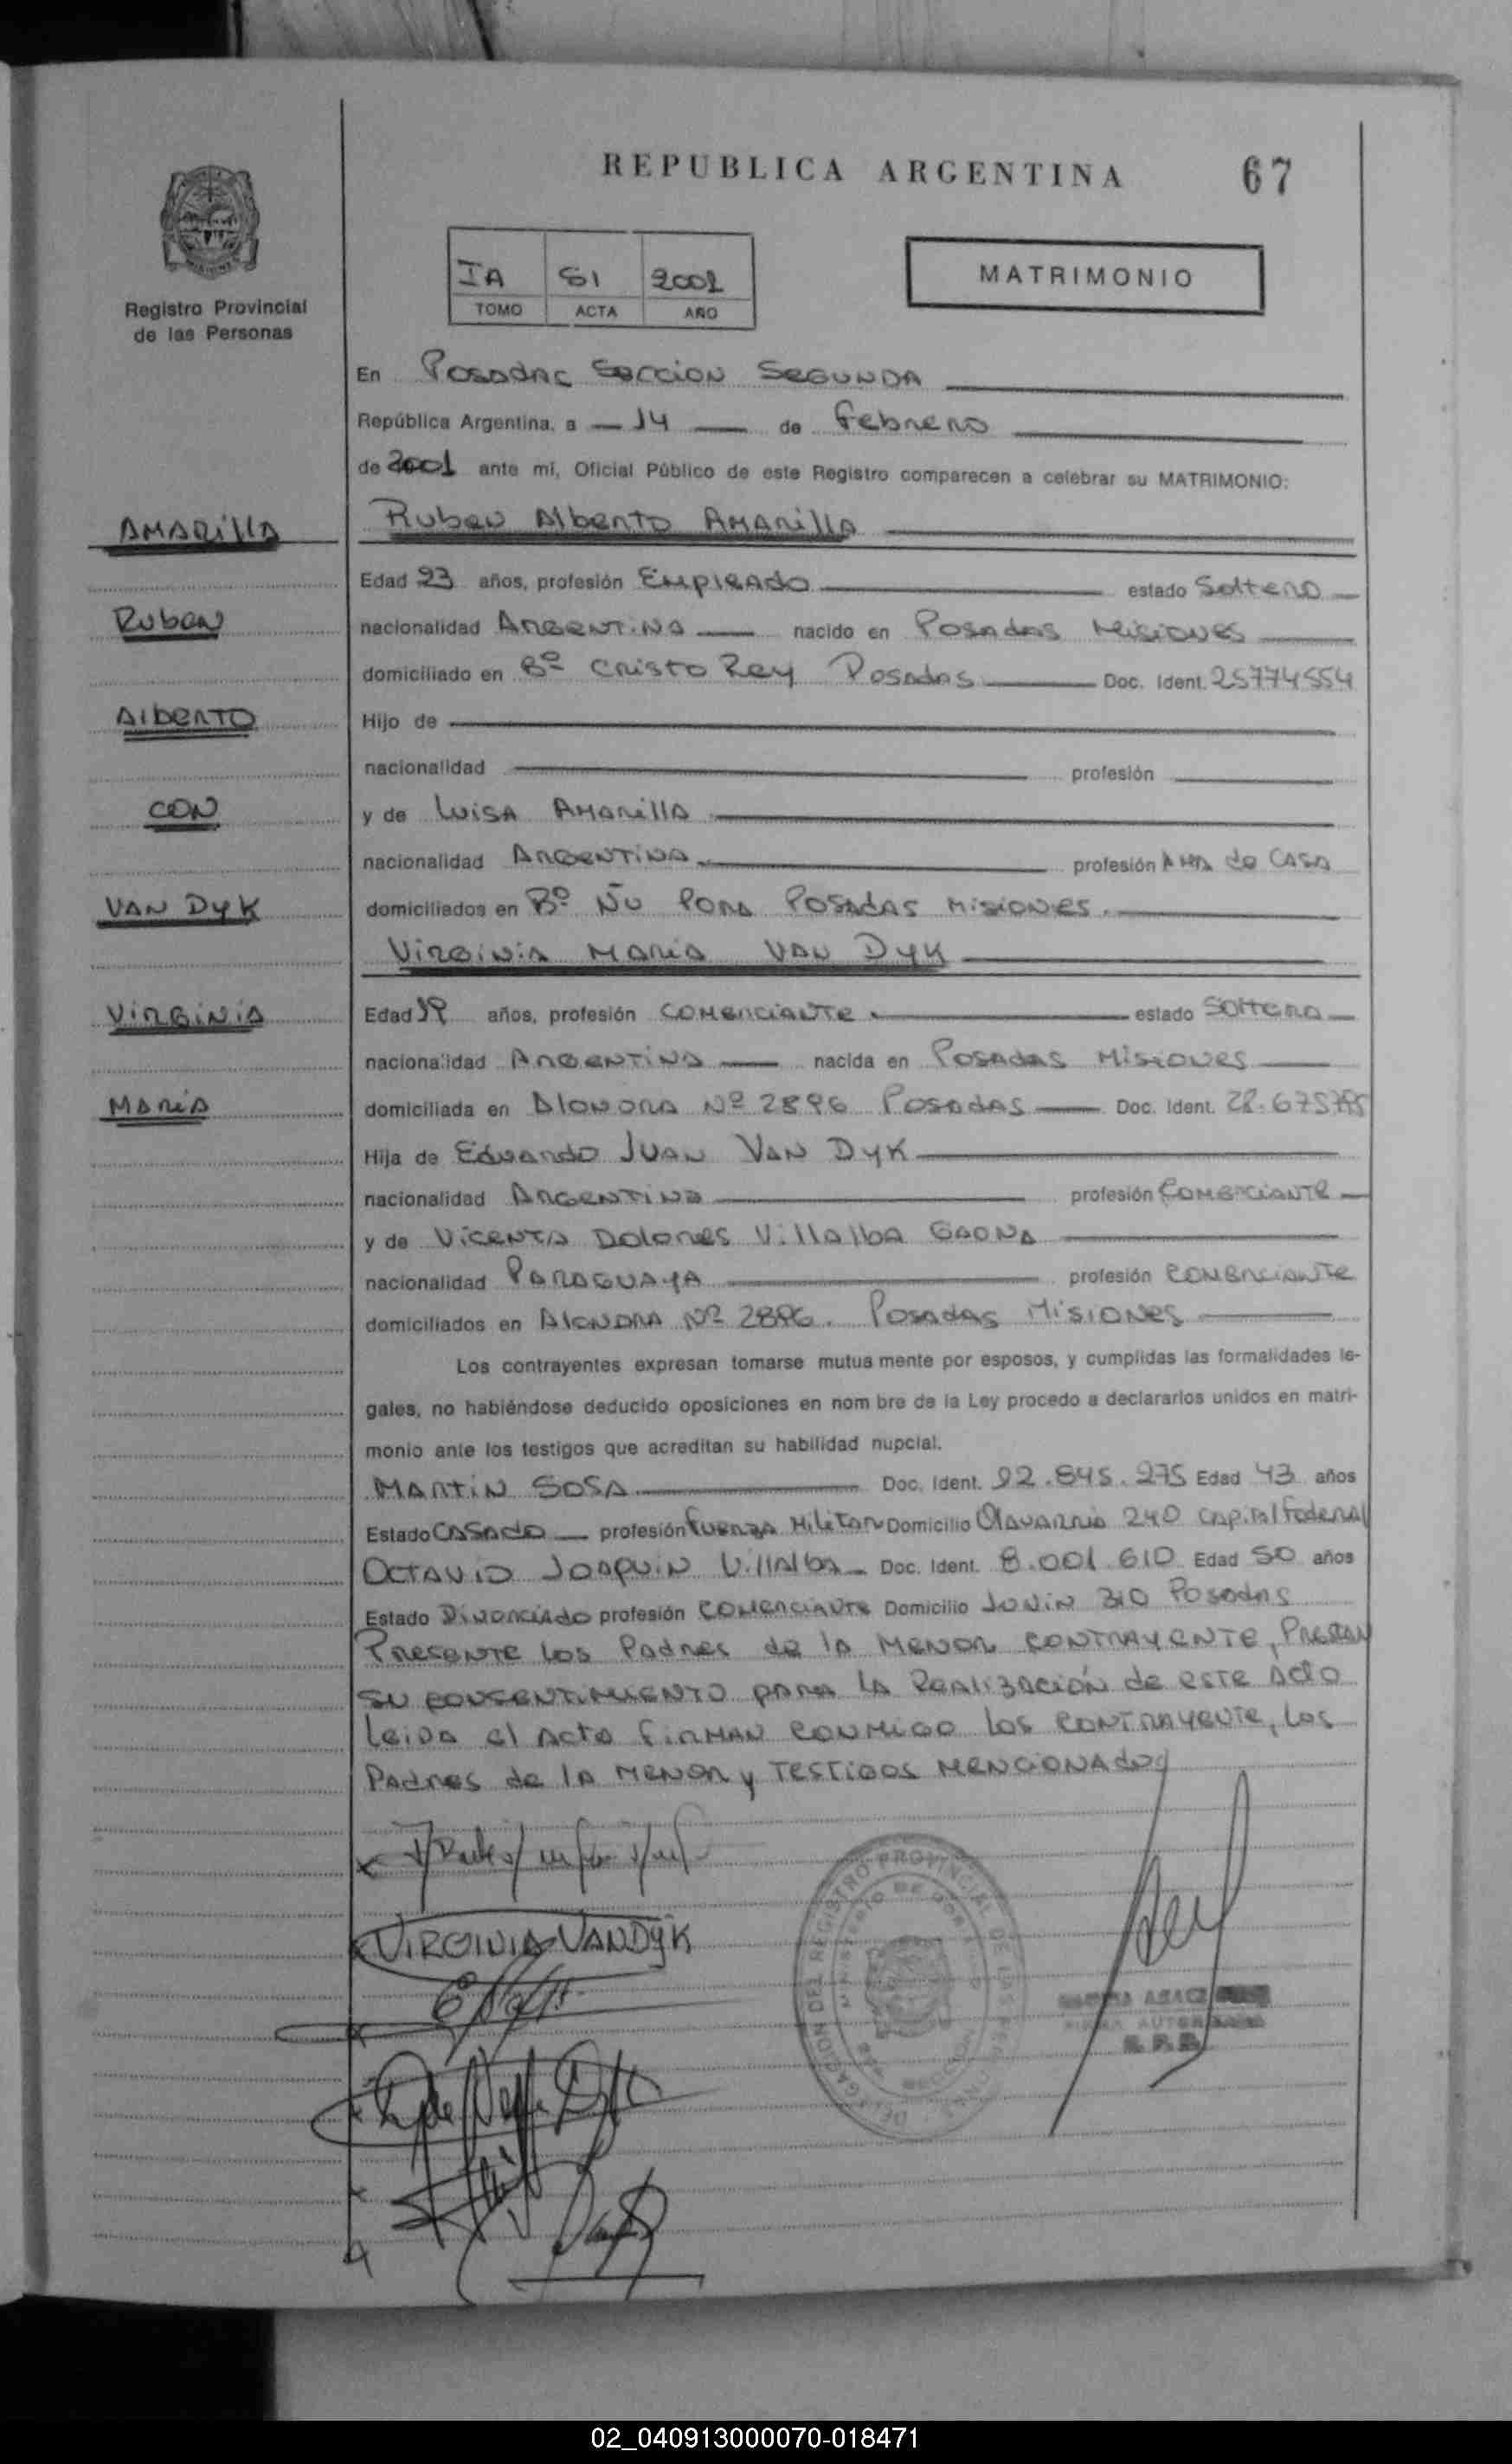 REPUBLICA ARGENTINA 67
IA 51 2001
TOMO ACTA AÑO
MATRIMONIO
Registro Provincial
de las Personas
En Posadas Seccion Segunda
República Argentina, a 14 de Febrero
de 2001 ante mí, Oficial Público de este Registro comparecen a celebrar su MATRIMONIO:
AMARILLA
Ruben Alberto Amarilla
Edad 23 años, profesión Empleado estado Soltero
Ruben
nacionalidad Argentina nacido en Posadas Misiones
domiciliado en Bº Cristo Rey Posadas Doc. Ident. 25774554
Alberto
Hijo de
nacionalidad profesión
CON
y de Luisa Amarilla
nacionalidad Argentina profesión Ama de Casa
VAN DYK
domiciliados en Bº Ñu Pora Posadas Misiones.
Virginia Maria Van Dyk
Virginia
Edad 19 años, profesión Comerciante estado Soltera
nacionalidad Argentina nacida en Posadas Misiones
Maria
domiciliada en Alondra Nº 2896 Posadas Doc. Ident. 28.675
Hija de Eduardo Juan Van Dyk
nacionalidad Argentina profesión Comerciante
y de Vicenta Dolores Villalba Gaona
nacionalidad Paraguaya profesión Comerciante
domiciliados en Alondra Nº 2896. Posadas Misiones
Los contrayentes expresan tomarse mutua mente por esposos, y cumplidas las formalidades le-
gales, no habiéndose deducido oposiciones en nom bre de la Ley procedo a declararlos unidos en matri-
monio ante los testigos que acreditan su habilidad nupcial.
Martin Sosa Doc. Ident. 12.845.275 Edad 43 años
Estado Casado profesión Fuerza Militar Domicilio Olavarria 240 Capital Federal
Octavio Joaquin Villalba Doc. Ident. 8.001.610 Edad 50 años
Estado Divorciado profesión Comerciante Domicilio Junin 310 Posadas
Presente los Padres de la menor contrayente, Prestan
su consentimiento para la Realización de este acto
Leida el Acta firman conmigo los contrayente, los
Padres de la menor y Testigos mencionados
VIRGINIA VANDYK
DELEGACION DEL REGISTRO PROVINCIAL DE LAS PERSONAS
MINISTERIO DE GOBIERNO
02_040913000070-018471